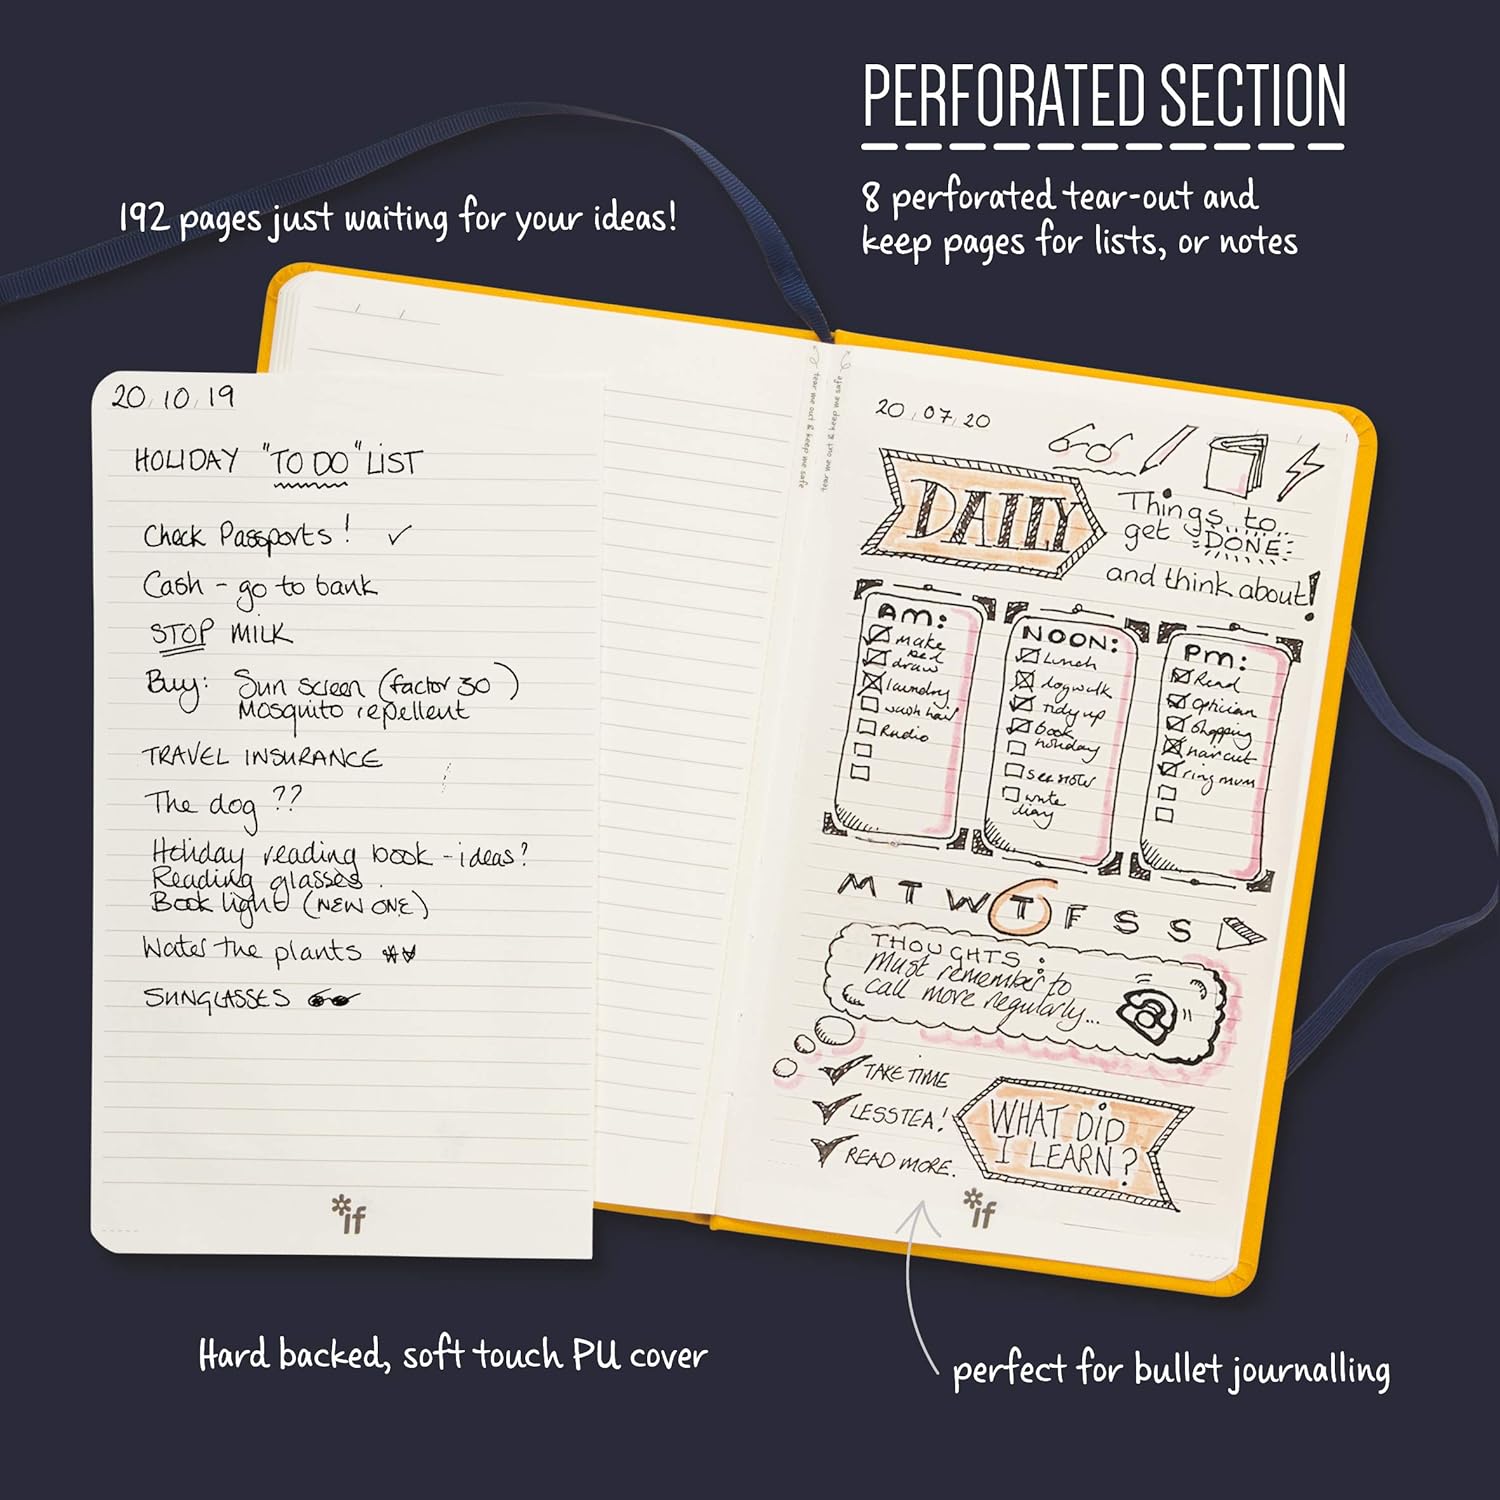 PERFORATED SECTION
8 perforated tear-out and
keep pages for lists, or notes
192 pages just waiting for your ideas!
20 10 19
HOLIDAY "TO DO" LIST
Check Passports! ✓
Cash - go to bank
STOP MILK
Buy: Sun screen (factor 30)
Mosquito repellent
TRAVEL INSURANCE
The dog ??
Holiday reading book - ideas?
Reading glasses.
Book light (NEW ONE)
Water the plants
SUNGLASSES
if
tear me out & keep me safe
tear me out & keep me safe
20 07 20
DAILY
Things to
get DONE
and think about!
AM:
make
bed
draw
laundry
wash hair
Radio
NOON:
Lunch
dogwalk
Tidy up
book
holiday
see sister
write
diary
PM:
Read
Optician
Shopping
haircut
ring mum
M T W T F S S
THOUGHTS:
Must remember to
call more regularly...
TAKE TIME
LESS TEA!
READ MORE.
WHAT DID
I LEARN?
if
Hard backed, soft touch PU cover
perfect for bullet journalling